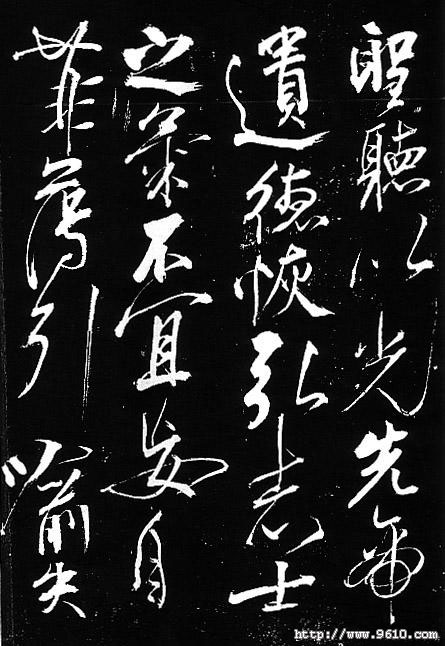 聖聽以光先帝
遺德恢弘志士
之氣不宜妄自
菲薄引喻失
http://www.9610.com